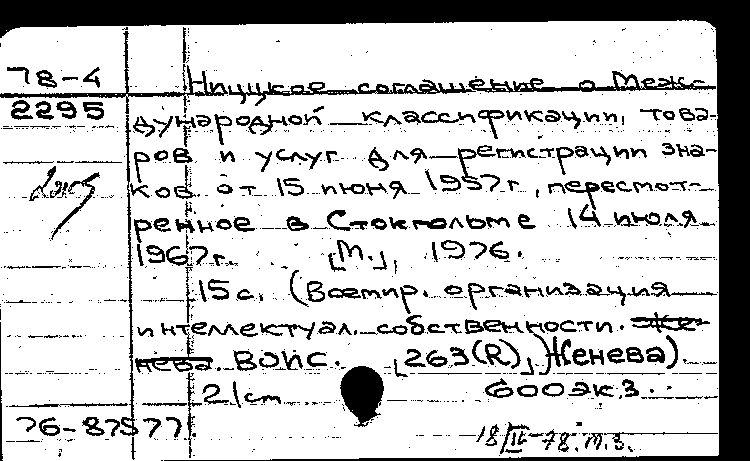 78-4 Ниццкое соглашение о Меж-
2295 дународной классификации, това-
ров и услуг для регистрации зна-
ков от 15 июня 1957г., пересмот-
ренное в Стокгольме 14 июля
1967г. [М.], 1976.
15с. (Всемир. организация
интеллектуал. собственности. Же-
нева. ВОИС. [263(R)] Женева).
21cm 600экз.
76-87577
18/IV-78. т.з.